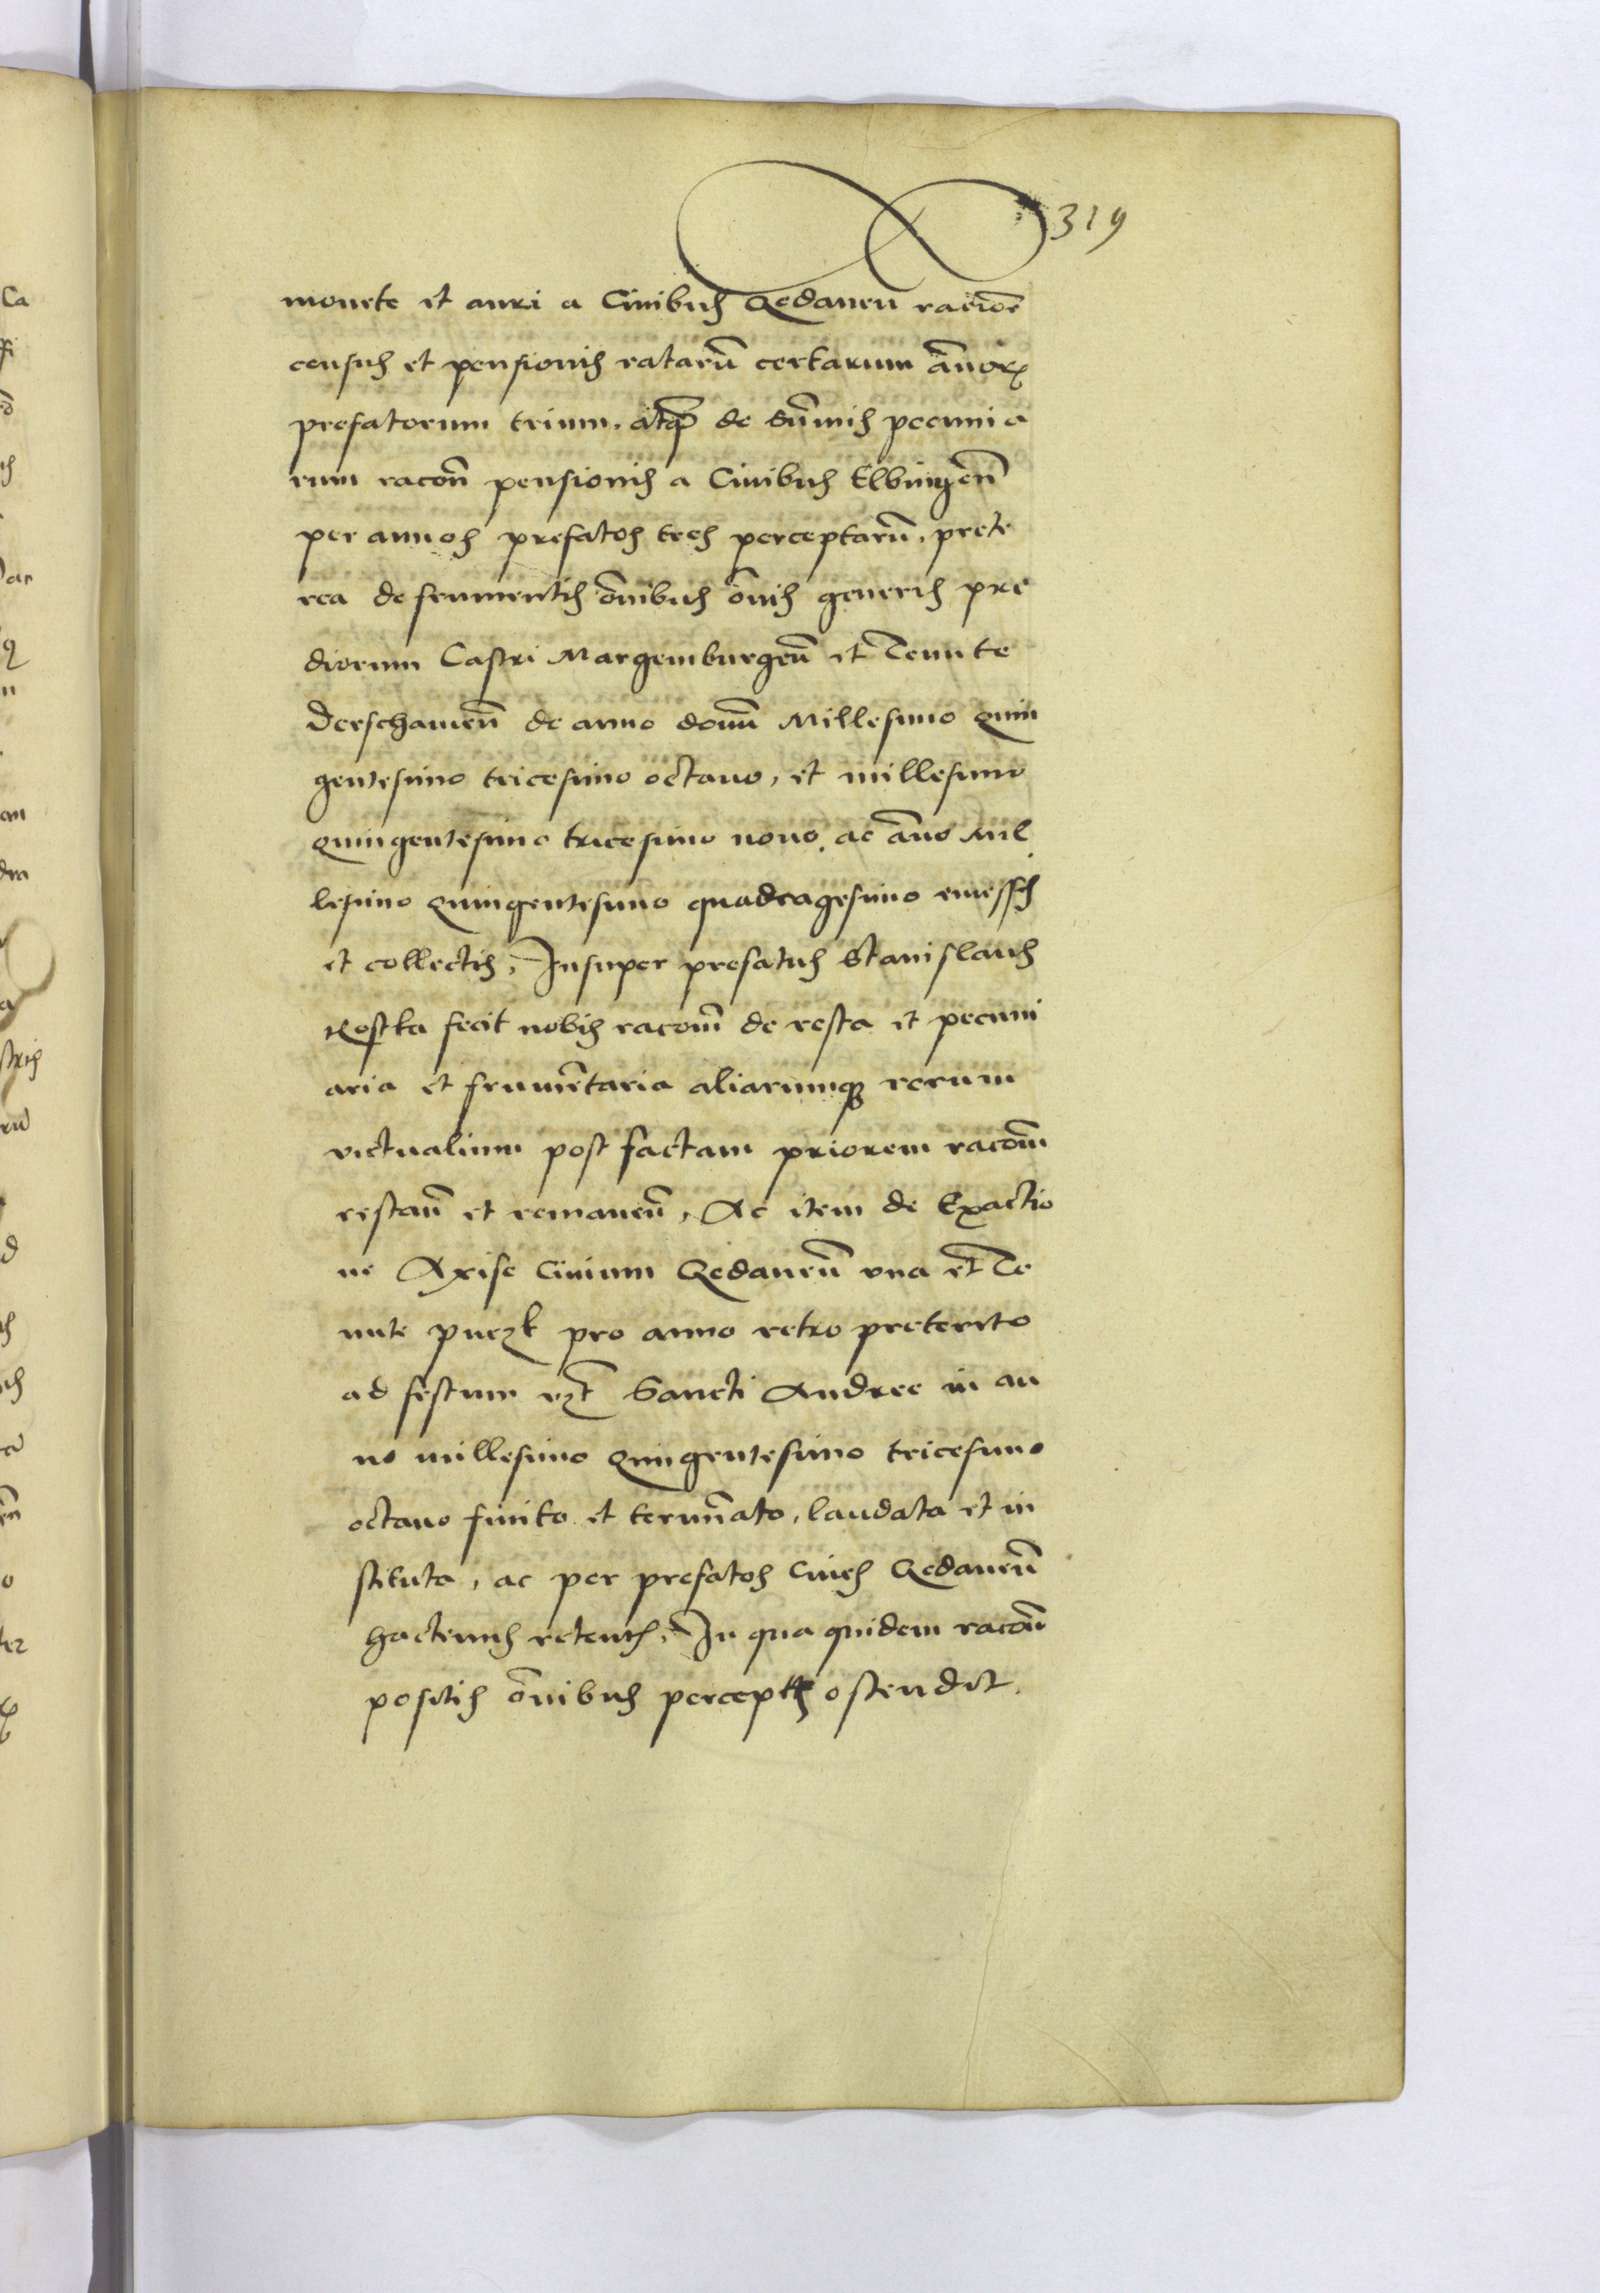 319
monete et auri a Ciuibus Gedanen racione
census et pensionis ratarum certarum annorum
prefatorum trium. atque de summis pecunia
rum racone pensionis a Ciuibus Elbingen
per annos prefatos tres perceptarum, prete
rea de frumentis omnibus omnis generis pre
diorum Castri Margemburgen et Tenute
Derschauien de anno domini Millesimo quin
gentesimo tricesimo octauo, et millesimo
quingentesimo tricesimo nono. ac anno Mil
lesimo quingentesimo quadragesimo emessis
et collectis, Insuper prefatus Stanislaus
Kostka fecit nobis raconem de resta et pecuni
aria et frumentaria aliarumque rerum
victualium post factam priorem raconem
restan et remanen, Ac item de Exactio
ne Axise Ciuium Gedanen vna et Te
nute puczk pro anno retro preterito
ad festum vzt Sancti Andree in an
no millesimo quingentesimo tricesimo
octauo finito et terminato, laudata et in
stituta, ac per prefatos Ciues Gedanen
hactenus retentis, In qua quidem racone
positis omnibus perceptis ostendit.